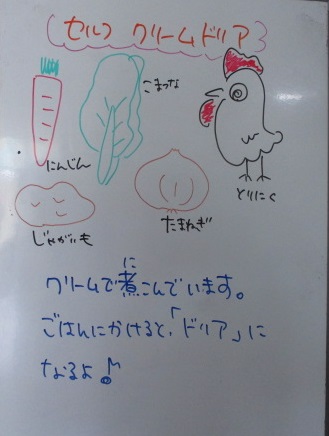 セルフ クリームドリア
こまつな
にんじん
とりにく
じゃがいも
たまねぎ
に
クリームで煮こんでいます。
ごはんにかけると、「ドリア」に
なるよ♪